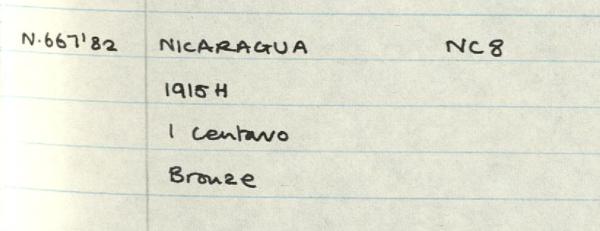 N.667'82 NICARAGUA NC8
1915H
1 Centavo
Bronze